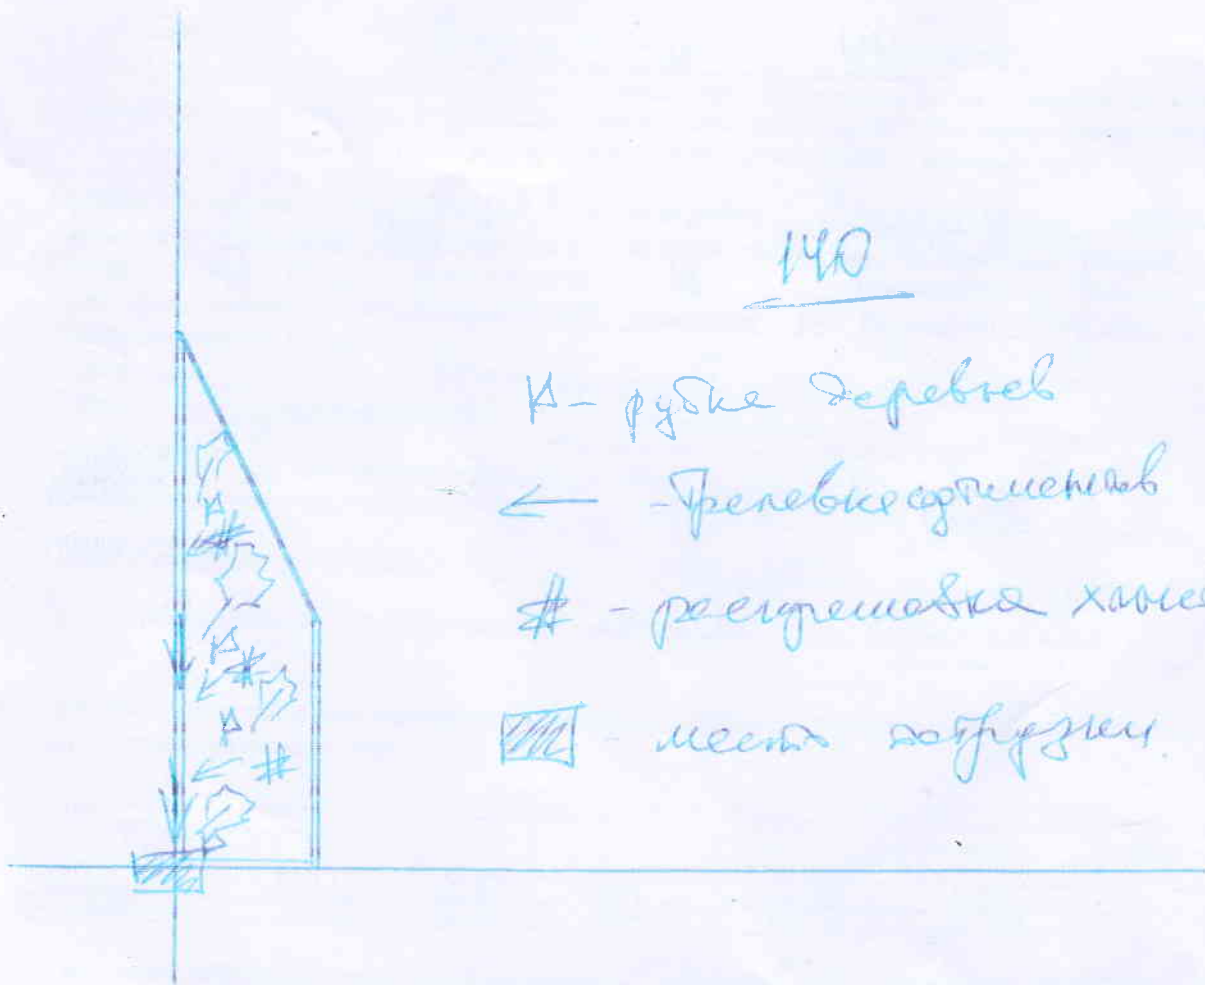 140
- рубка деревьев
← - Трелевка сортиментов
# - раскряжовка хлыс
- место погрузки